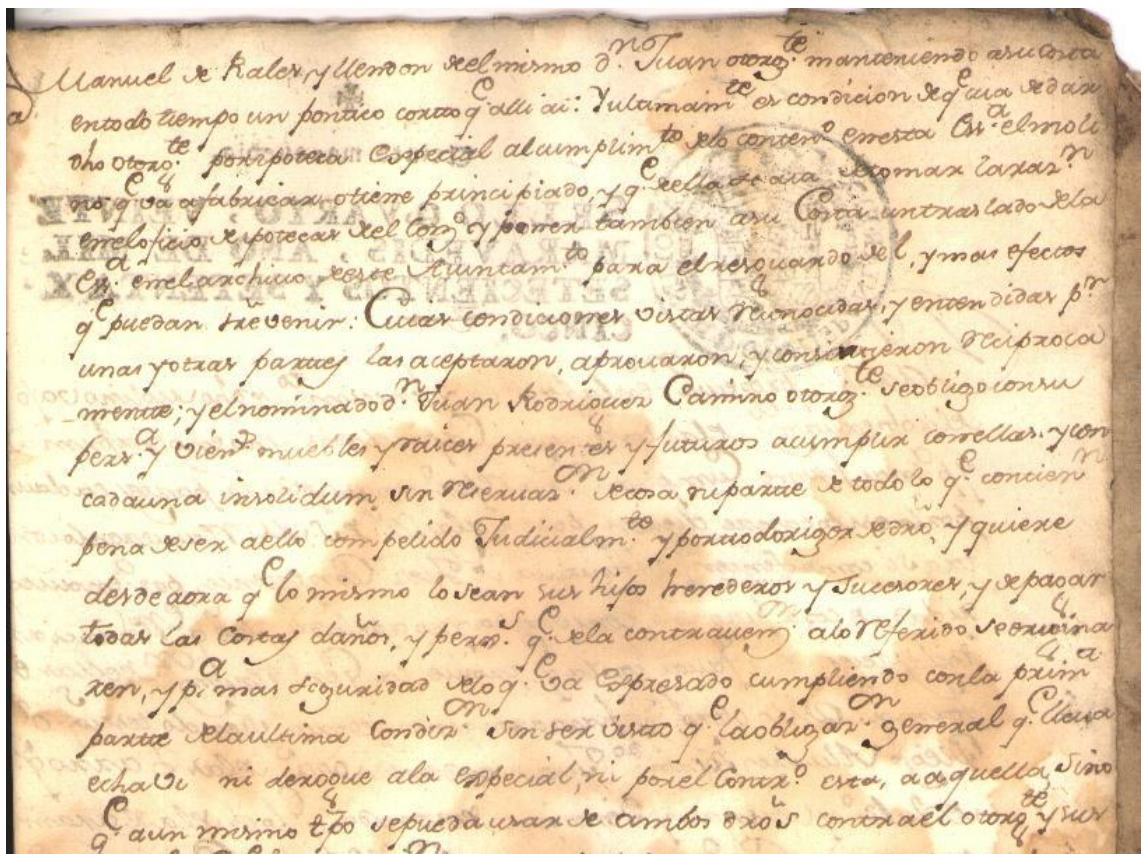 Manuel de Rales, y llendon del mismo dn. Juan otorgte. manteniendo asu Costa
entodo tiempo un pontico cortto qe alli ai: Yultamaimte es condicion de qe aia de dar
dho otorgte. poripoteca Especial alcumplimto delo conteno enesta Essa. elmoli
no qe va afabricar otiene principiado, y qe della se aia detomar larazn
eneloficio de ipotecas del Como. y poner tambien asu Costa untraslado dela
Essa. enelarchivo deeste Aiuntamto para elresguardo del, ymas efectos
qe puedan sreuenir: Cuias condiciones vistas Reconocidas, y entendidas pr
unas yotras parttes las aceptaron, aprouaron, y consintieron Reciproca
mentte; y elnominado dn. Juan Rodriguez Camino otorgte. seobligo consu
persa. y vienes muebles y raices presentes y futuros acumplir conellas, y con
cadauna insolidum sin Reseruazn. decosa niparte de todo lo qe contienn
pena deser aello compelido Judicialmte. y portodorigor dedro, y quiere
desde aora qe lo mismo losean sus hijos herederos y Sucesores, y depagar
todas las Costas daños, y perxs. qe dela contrauenn. alo Referido seorixina
ren, y pa. mas seguridad delo qe va Espresado cumpliendo conla prima
partte delaultima Condizn. sin ser visto qe laobligazn. general qe lleua
echa vi ni derogue ala especial, ni porel Contro. esta, aaquella, sino
qe aun mismo tpo sepueda usar de ambos dros contrael otorgte y sus